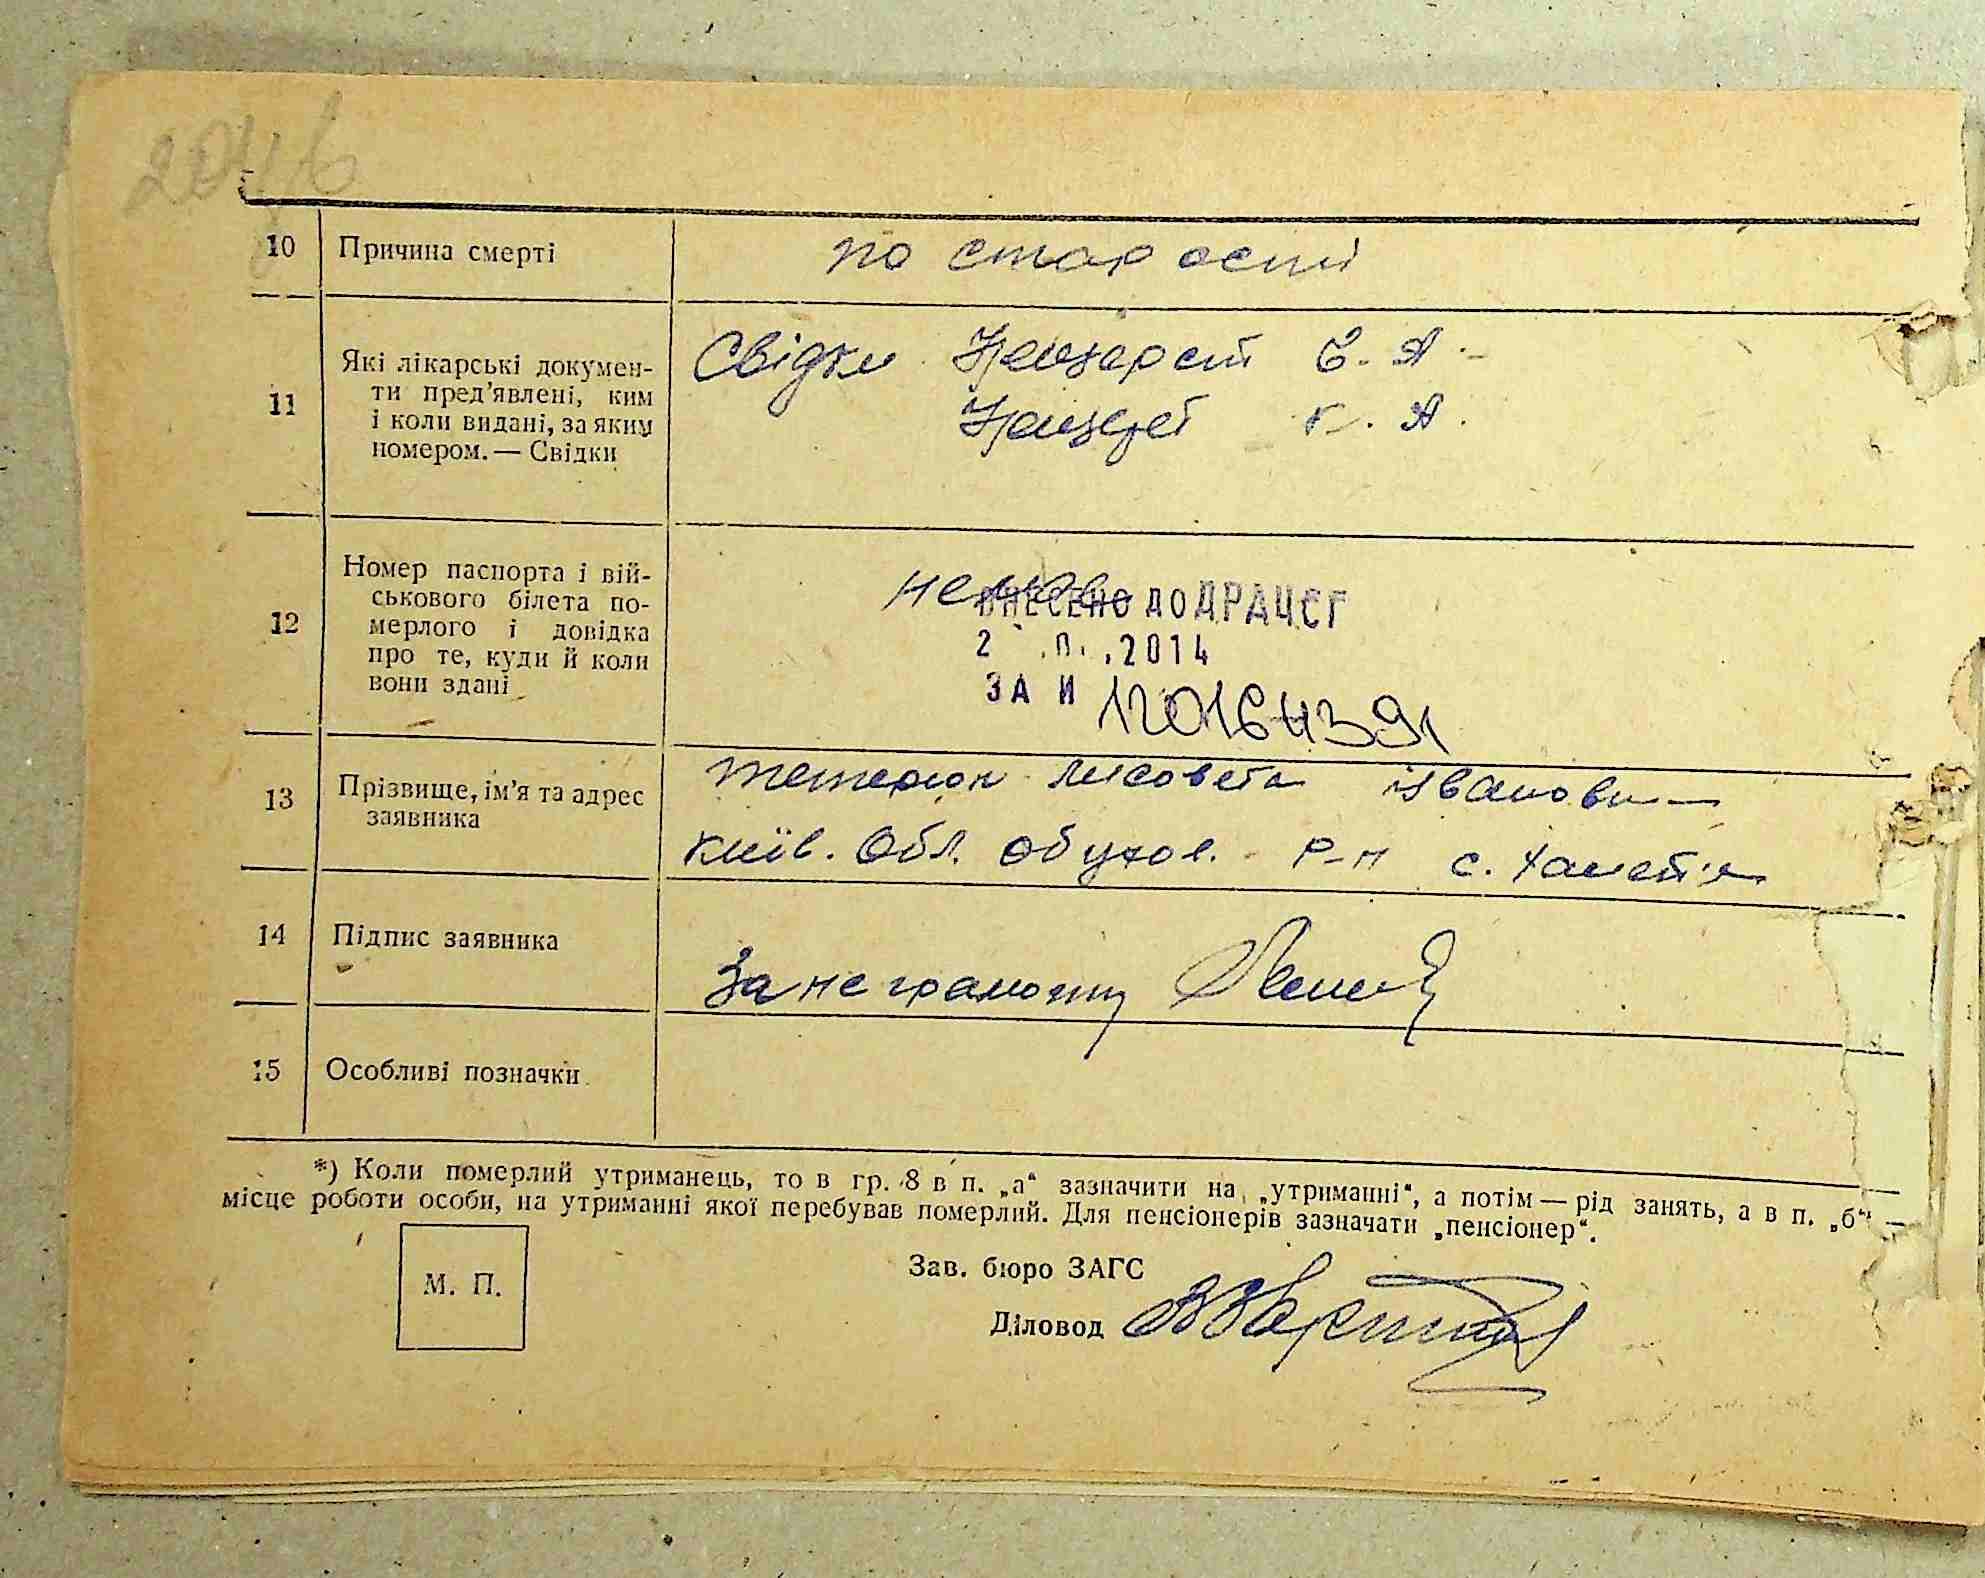 10 Причина смерті по старости
11 Які лікарські докумен-
ти пред'явлені, ким
і коли видані, за яким
номером. — Свідки
Свідки Е. А.
К. А.
12 Номер паспорта і вій-
ськового білета по-
мерлого і довідка
про те, куди й коли
вони здані
нема
ВНЕСЕНО ДО ДРАЦСГ
2 .П. .2014
ЗА И 120164391
13 Прізвище, ім'я та адрес
заявника
лисовета івановн
київ. Обл. обухов. р-н с.
14 Підпис заявника За неграмотну
15 Особливі позначки
*) Коли померлий утриманець, то в гр. 8 в п. „а“ зазначити на „утриманні“, а потім — рід занять, а в п. „б“ —
місце роботи особи, на утриманні якої перебував померлий. Для пенсіонерів зазначати „пенсіонер“.
М. П.
Зав. бюро ЗАГС
Діловод